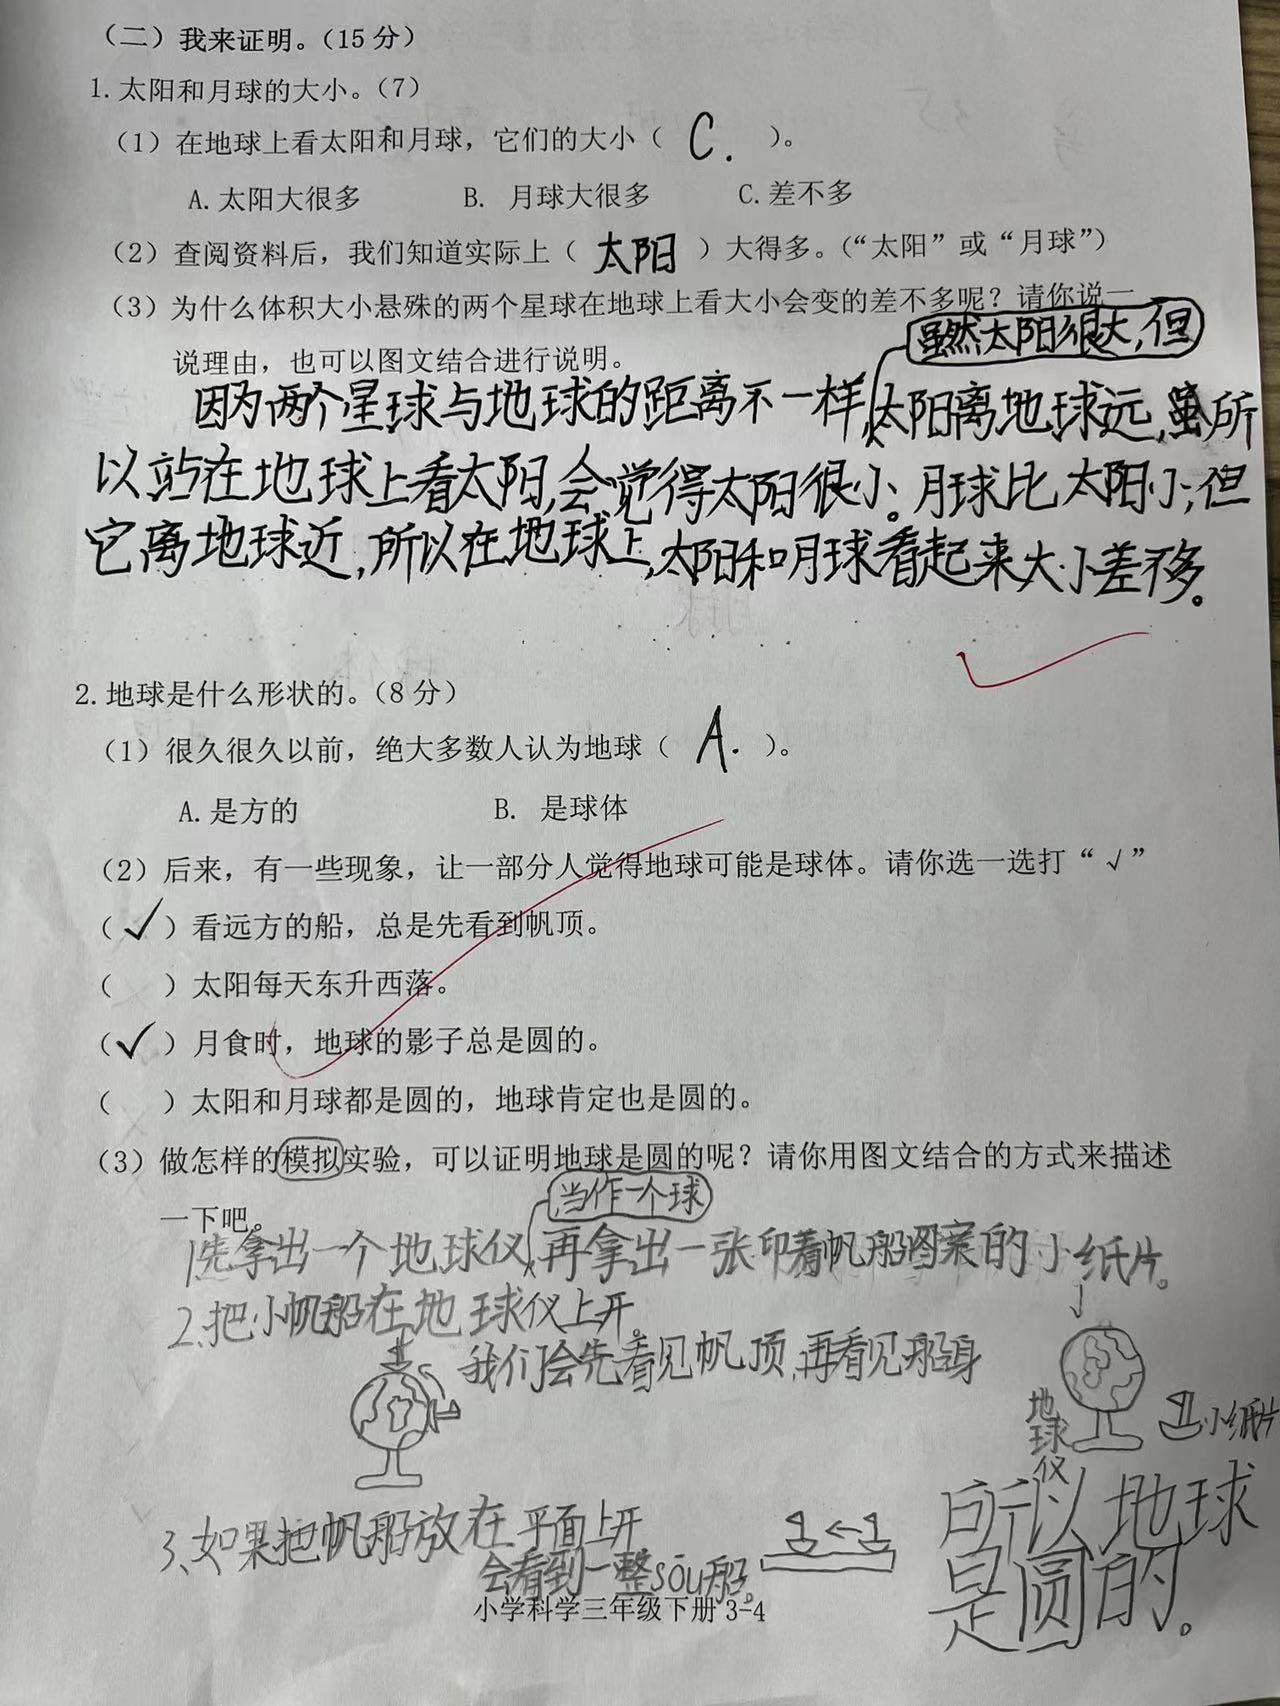 （二）我来证明。（15分）
1.太阳和月球的大小。（7）
（1）在地球上看太阳和月球，它们的大小（ C. ）。
A.太阳大很多 B. 月球大很多 C.差不多
（2）查阅资料后，我们知道实际上（ 太阳 ）大得多。（“太阳”或“月球”）
（3）为什么体积大小悬殊的两个星球在地球上看大小会变的差不多呢？请你说一
说理由，也可以图文结合进行说明。
虽然太阳很大，但
因为两个星球与地球的距离不一样，太阳离地球远，所
以站在地球上看太阳，会觉得太阳很小。月球比太阳小，但
它离地球近，所以在地球上，太阳和月球看起来大小差不多。
2.地球是什么形状的。（8分）
（1）很久很久以前，绝大多数人认为地球（ A. ）。
A.是方的 B. 是球体
（2）后来，有一些现象，让一部分人觉得地球可能是球体。请你选一选打“√”
（✓）看远方的船，总是先看到帆顶。
（ ）太阳每天东升西落。
（✓）月食时，地球的影子总是圆的。
（ ）太阳和月球都是圆的，地球肯定也是圆的。
（3）做怎样的模拟实验，可以证明地球是圆的呢？请你用图文结合的方式来描述
一下吧。
当作一个球
1.先拿出一个地球仪，再拿出一张印着帆船图案的小纸片。
2.把小帆船在地球仪上开。
我们会先看见帆顶，再看见船身
地球仪
小纸片
3.如果把帆船放在平面上开
会看到一整sōu船。
所以地球
是圆的。
小学科学三年级下册 3-4